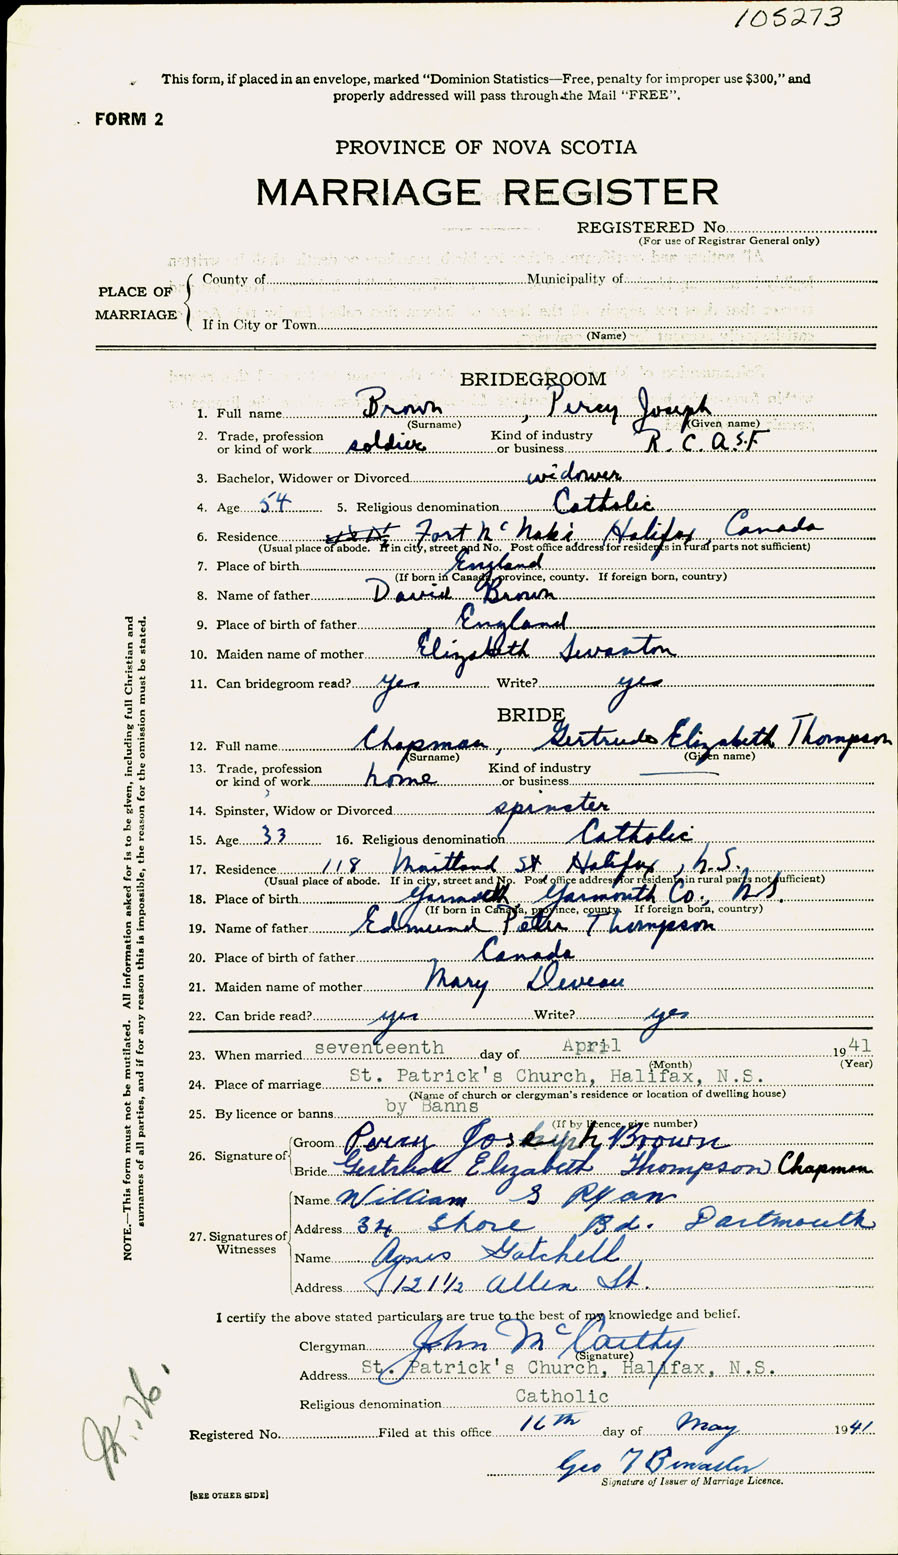 105273
This form, if placed in an envelope, marked "Dominion Statistics—Free, penalty for improper use $300," and
properly addressed will pass through the Mail "FREE".
FORM 2
PROVINCE OF NOVA SCOTIA
MARRIAGE REGISTER
REGISTERED No.
(For use of Registrar General only)
PLACE OF MARRIAGE
County of Municipality of
If in City or Town
(Name)
BRIDEGROOM
1. Full name Brown, Percy Joseph
(Surname) (Given name)
2. Trade, profession or kind of work soldier Kind of industry or business R.C.A.S.F
3. Bachelor, Widower or Divorced widower
4. Age 54 5. Religious denomination Catholic
6. Residence Fort McNabs Halifax, Canada
(Usual place of abode. If in city, street and No. Post office address for residents in rural parts not sufficient)
7. Place of birth England
(If born in Canada, province, county. If foreign born, country)
8. Name of father David Brown
9. Place of birth of father England
10. Maiden name of mother Elizabeth Swanton
11. Can bridegroom read? yes Write? yes
BRIDE
12. Full name Chapman, Gertrude Elizabeth Thompson
(Surname) (Given name)
13. Trade, profession or kind of work home Kind of industry or business
14. Spinster, Widow or Divorced spinster
15. Age 33 16. Religious denomination Catholic
17. Residence 118 Maitland St Halifax, N.S.
(Usual place of abode. If in city, street and No. Post office address for residents in rural parts not sufficient)
18. Place of birth Yarmouth Yarmouth Co., N.S.
(If born in Canada, province, county. If foreign born, country)
19. Name of father Edmund Peter Thompson
20. Place of birth of father Canada
21. Maiden name of mother Mary Deveau
22. Can bride read? yes Write? yes
23. When married seventeenth day of April 1941
(Month) (Year)
24. Place of marriage St. Patrick's Church, Halifax, N.S.
(Name of church or clergyman's residence or location of dwelling house)
25. By licence or banns by Banns
(If by licence, give number)
26. Signature of Groom Percy Joseph Brown
Bride Gertrude Elizabeth Thompson Chapman
27. Signatures of Witnesses
Name William S Ryan
Address 34 Shore Rd. Dartmouth
Name Agnes Gatchell
Address 121 1/2 Allen St.
I certify the above stated particulars are true to the best of my knowledge and belief.
Clergyman John McCarthy
(Signature)
Address St. Patrick's Church, Halifax, N.S.
Religious denomination Catholic
Registered No. Filed at this office 16th day of May 1941
Geo T
Signature of Issuer of Marriage Licence.
[SEE OTHER SIDE]
NOTE.—This form must not be mutilated. All information asked for is to be given, including full Christian and
surnames of all parties, and if for any reason this is impossible, the reason for the omission must be stated.